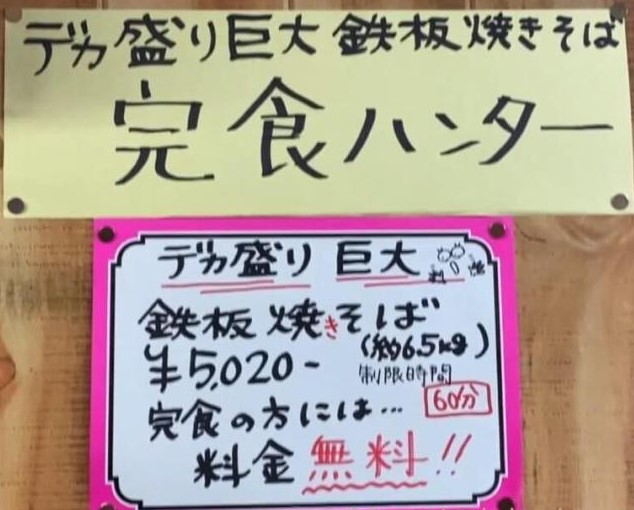 デカ盛り巨大 鉄板焼きそば
完食ハンター
デカ盛り 巨大
鉄板 焼きそば
(約6.5kg)
¥5,020-
制限時間
60分
完食の方には…
料金 無料!!